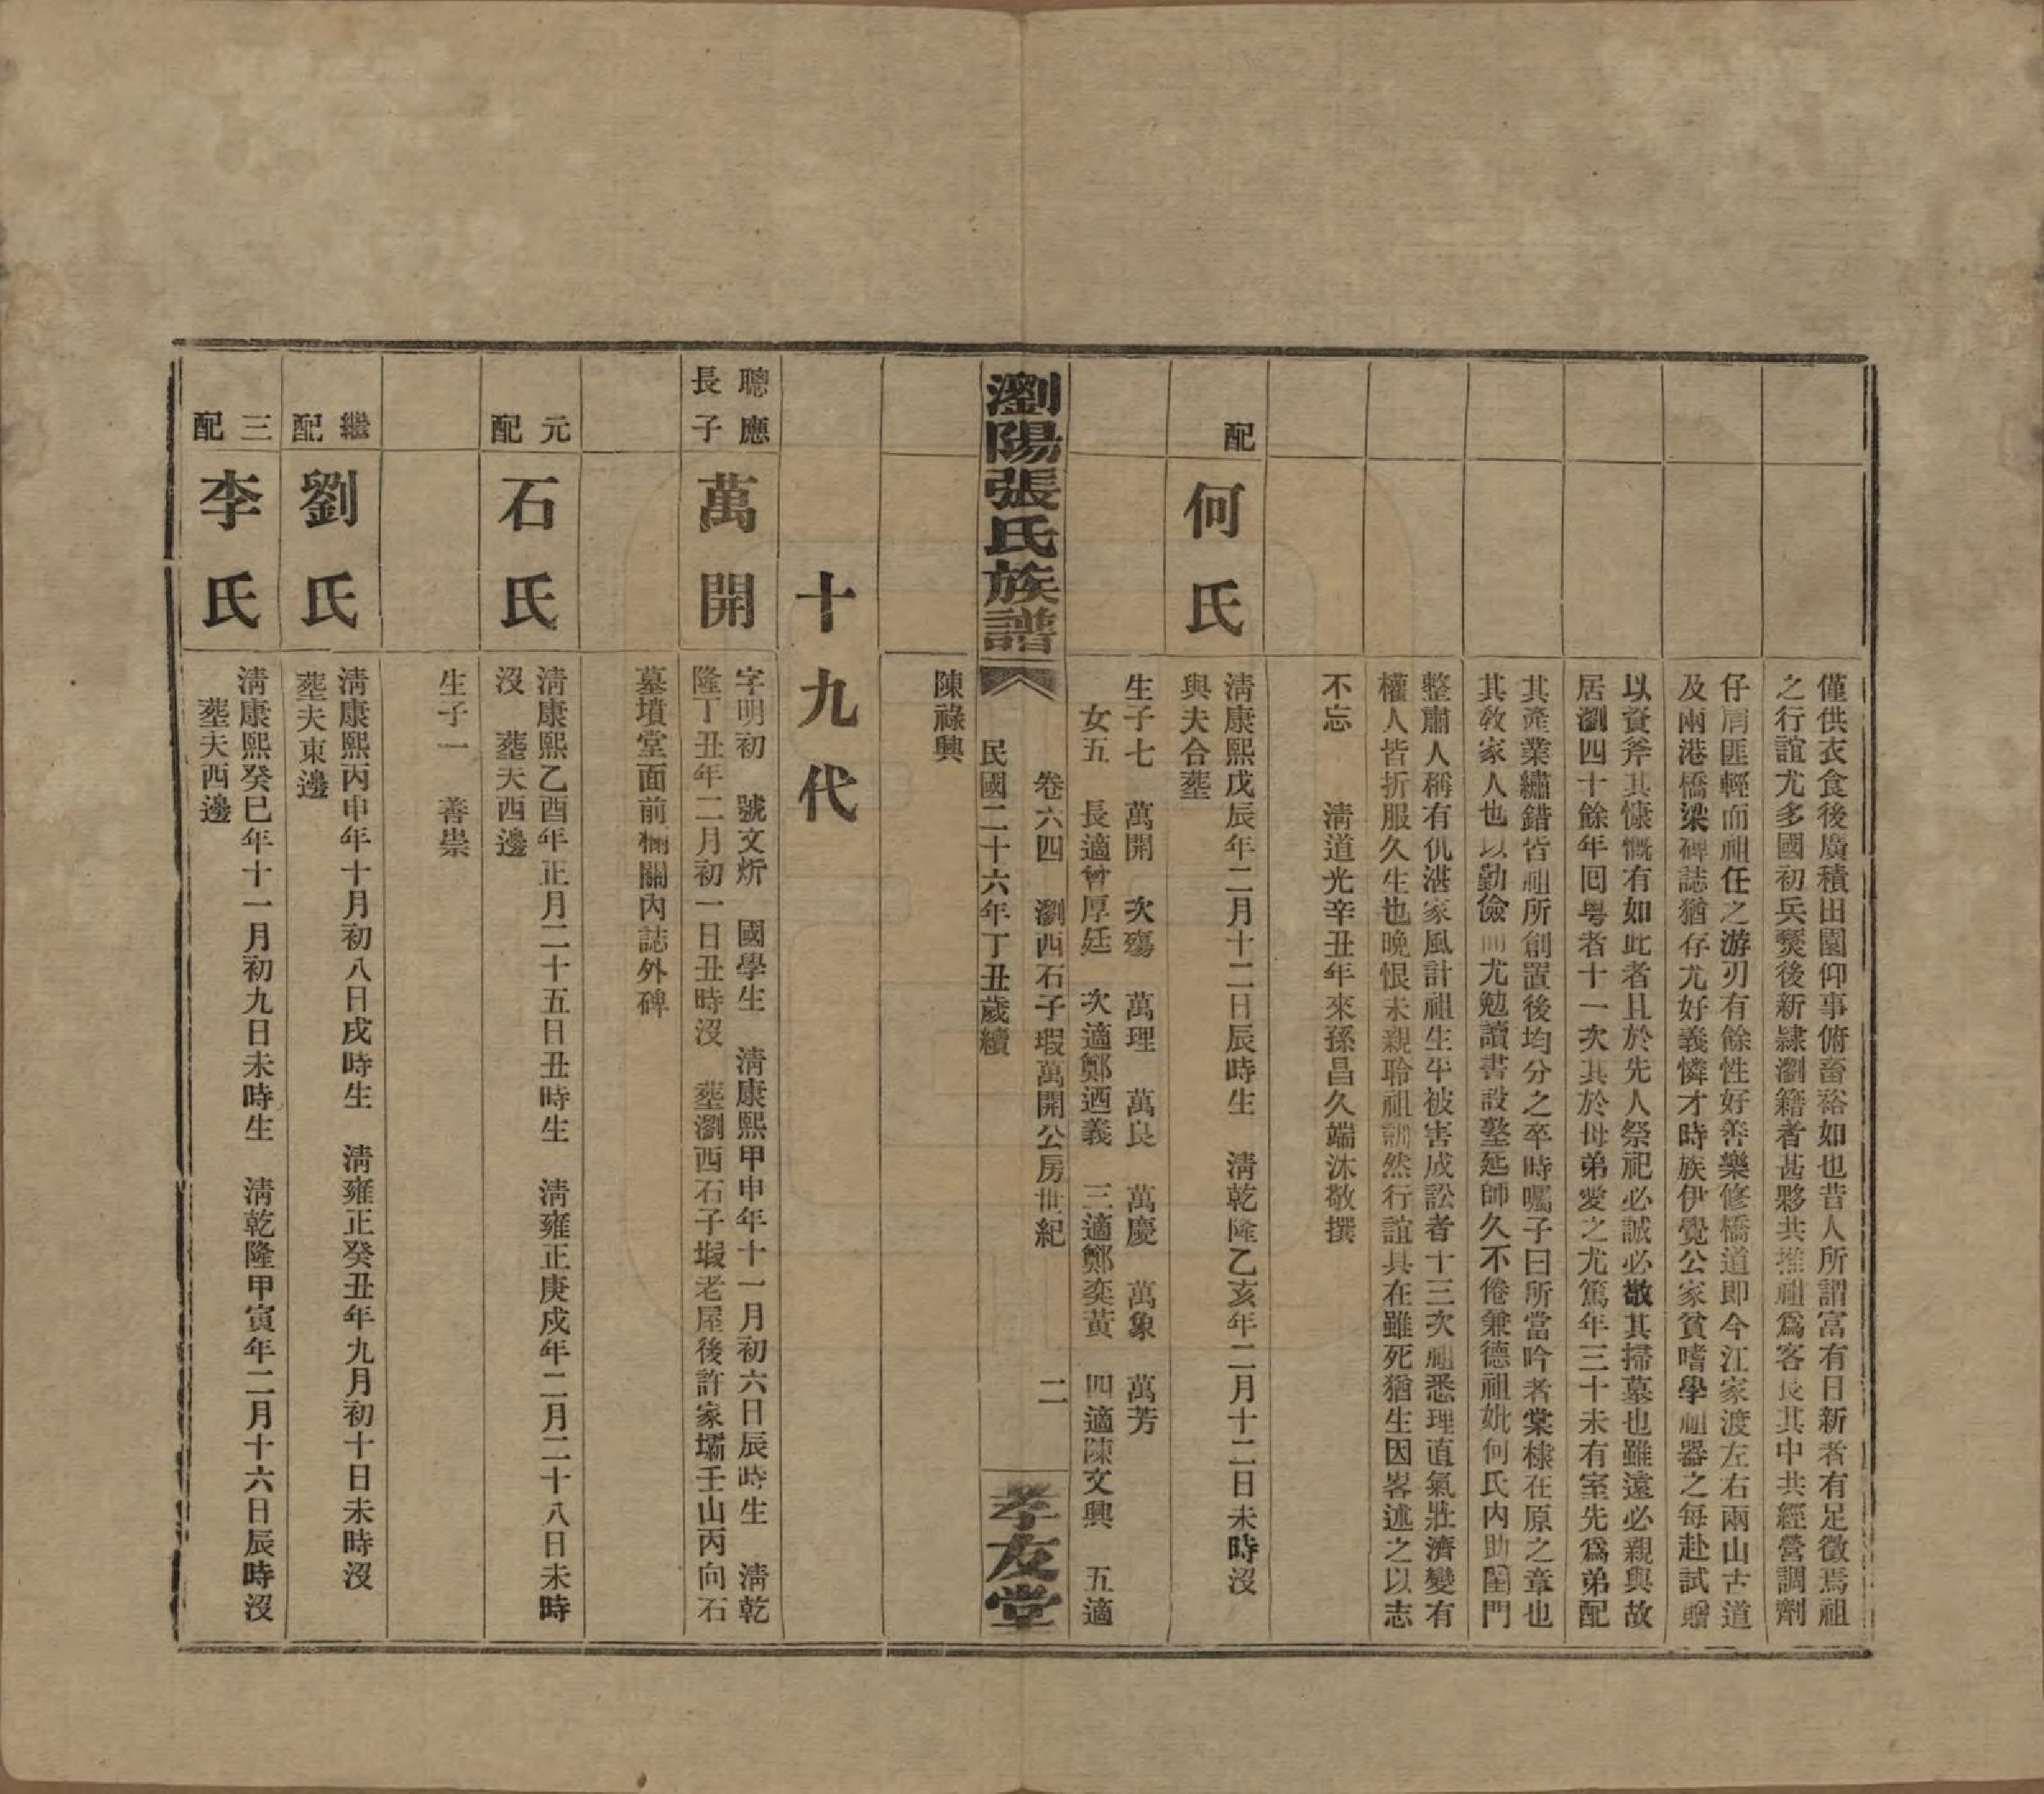 僅供衣食後廣積田園仰事俯畜裕如也昔人所謂富有日新者有足徵焉祖
之行誼尤多國初兵燹後新隸瀏籍者甚夥共推祖爲客長其中共經營調劑
仔肩匪輕而祖任之游刃有餘性好善樂修橋道即今江家渡左右兩山古道
及兩港橋梁碑誌猶存尤好義憐才時族伊覺公家貧嗜學祖器之每赴試贈
以資斧其慷慨有如此者且於先人祭祀必誠必敬其掃墓也雖遠必親與故
居瀏四十餘年囘粤者十一次其於母弟愛之尤篤年三十未有室先爲弟配
其產業繡錯皆祖所創置後均分之卒時囑子曰所當吟者棠棣在原之章也
其敎家人也以勤儉而尤勉讀書設塾延師久不倦兼德祖妣何氏內助閨門
整肅人稱有仉湛家風計祖生平被害成訟者十三次祖悉理直氣壯濟變有
權人皆折服久生也晚恨未親聆祖訓然行誼具在雖死猶生因畧述之以志
不忘　淸道光辛丑年來孫昌久端沐敬撰
配
何氏
淸康熙戊辰年二月十二日辰時生　淸乾隆乙亥年二月十二日未時沒
與夫合葬
生子七　萬開　次殤　萬理　萬良　萬慶　萬象　萬芳
女五　長適曾厚廷　次適鄭迺義　三適鄭奕黃　四適陳文興　五適
瀏陽張氏族譜
卷六四　瀏西石子塅萬開公房世紀　二
民國二十六年丁丑歲續
孝友堂
陳祿興
十九代
聰應
長子
萬開
字明初　號文炘　國學生　淸康熙甲申年十一月初六日辰時生　淸乾
隆丁丑年二月初一日丑時沒　葬瀏西石子塅老屋後許家壩壬山丙向石
墓墳堂面前欄關內誌外碑
元
配
石氏
淸康熙乙酉年正月二十五日丑時生　淸雍正庚戍年二月二十八日未時
沒　葬夫西邊
生子一　善崇
繼
配
劉氏
淸康熙丙申年十月初八日戌時生　淸雍正癸丑年九月初十日未時沒
葬夫東邊
三
配
李氏
淸康熙癸巳年十一月初九日未時生　淸乾隆甲寅年二月十六日辰時沒
葬夫西邊